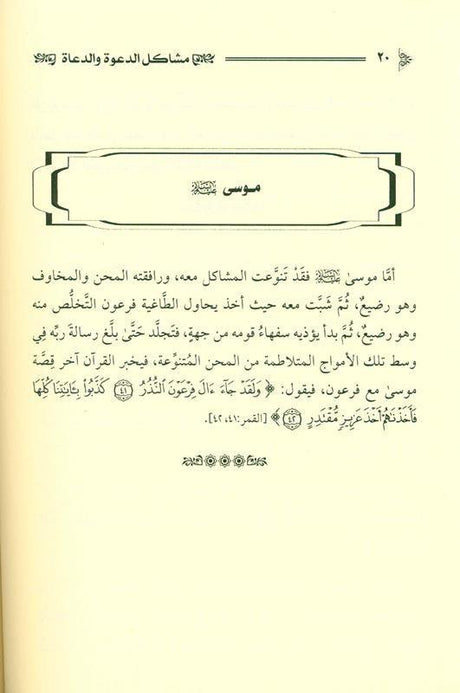 ٢٠ مشاكل الدعوة والدعاة
موسى عليه السلام
أمَّا موسىٰ عليه السلام فقَدْ تَنوَّعت المشاكل معه، ورافقته المحن والمخاوف
وهو رضيعٌ، ثُمَّ شَبَّت معه حيث أخذ يحاول الطَّاغية فرعون التَّخلُّص منه
وهو رضيعٌ، ثُمَّ بدأ يؤذيه سفهاءُ قومه من جهةٍ، فتَجلَّد حَتَّىٰ بلَّغ رسالةَ ربِّه فِي
وسط تلك الأمواج المتلاطمة من المحن المُتنوِّعة، فيخبر القرآن آخر قِصَّة
موسىٰ مع فرعون، فيقول: ﴿ وَلَقَدْ جَآءَ ءَالَ فِرْعَوْنَ ٱلنُّذُرُ ۝٤١ كَذَّبُوا۟ بِـَٔايَـٰتِنَا كُلِّهَا
فَأَخَذْنَـٰهُمْ أَخْذَ عَزِيزٍ مُّقْتَدِرٍ ۝٤٢ ﴾ [القمر:٤١، ٤٢].